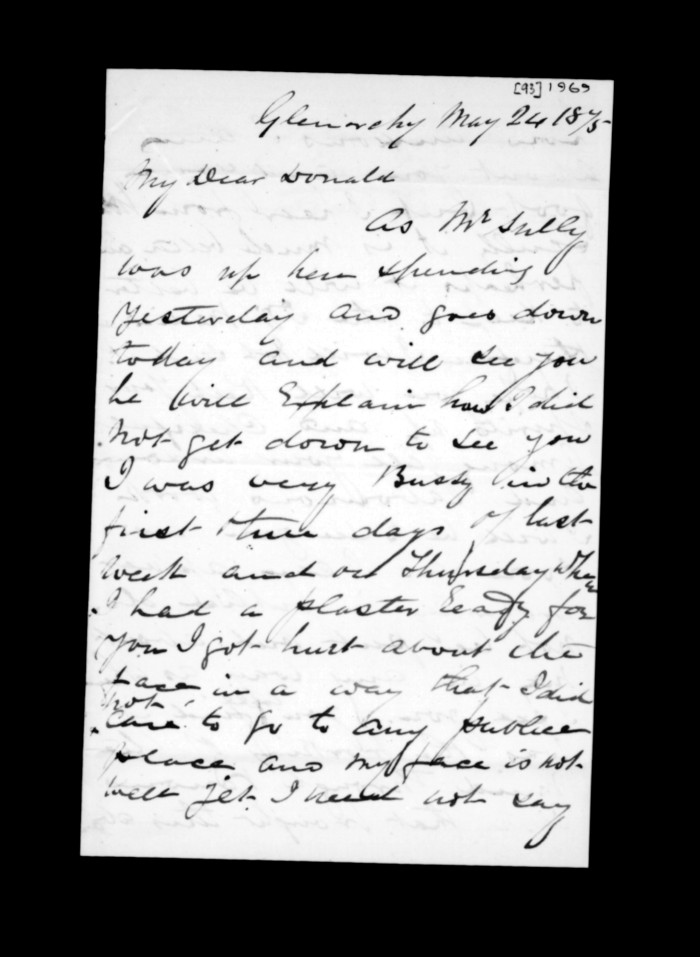 [93] 1969
Glenorchy May 24 1875
My Dear Donald
As Mr Sully
was up here spending
Yesterday and goes down
today and will see you
he will Explain how I did
Not get down to see you
I was very Bussy in the
first three days of last
week and on Thursday when
I had a plaster Ready for
you I got hurt about the
face in a way that I did
not
care to go to any publice
place and my face is not
well jet I need not say